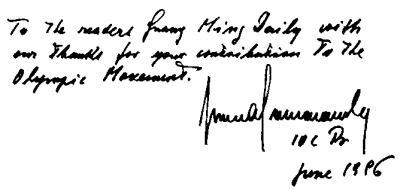 To the readers Guang Ming Daily with
our thanks for your contribution to the
Olympic Movement.
IOC
June 1986